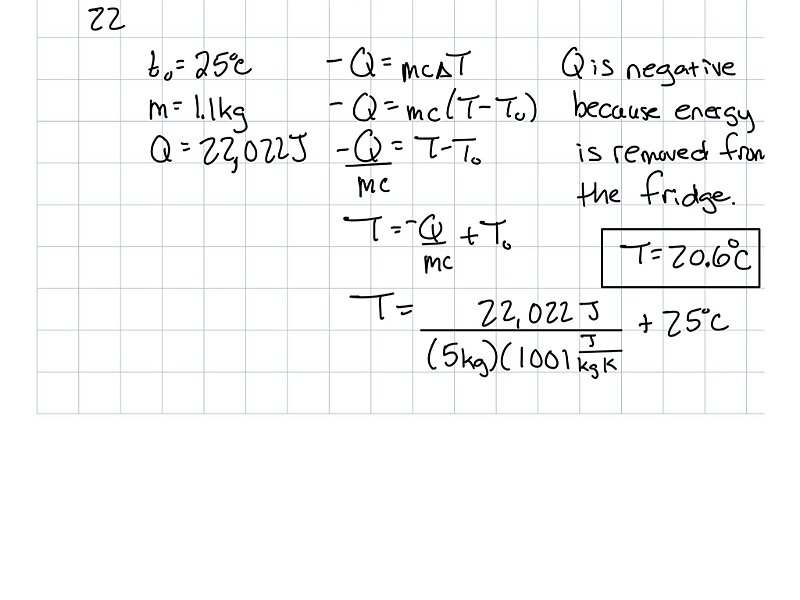 22
t₀ = 25°C
m = 1.1kg
Q = 22,022J
-Q = mcΔT
-Q = mc(T-T₀)
-Q/mc = T-T₀
T = -Q/mc + T₀
T = 22,022 J / (5kg)(1001 J/kgK + 25°C
Q is negative
because energy
is removed from
the fridge.
T = 20.6°C